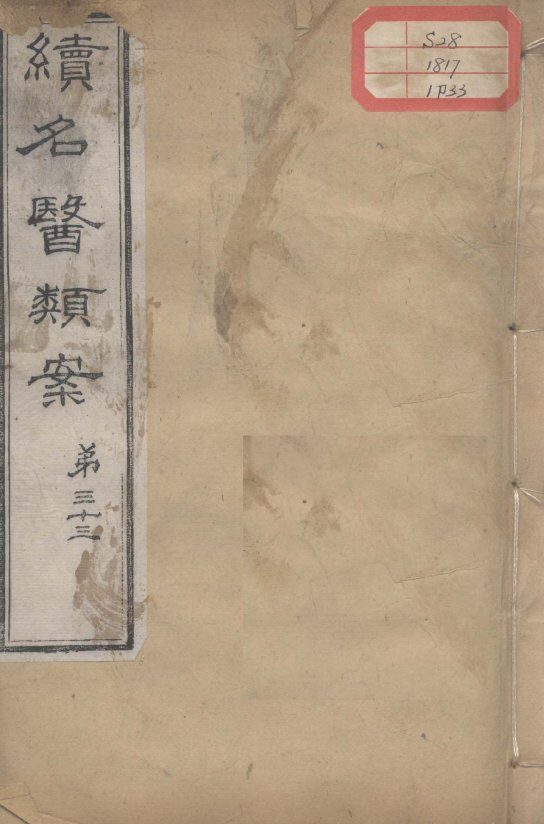 續名醫類案
第三十三
S28
1817
1P33